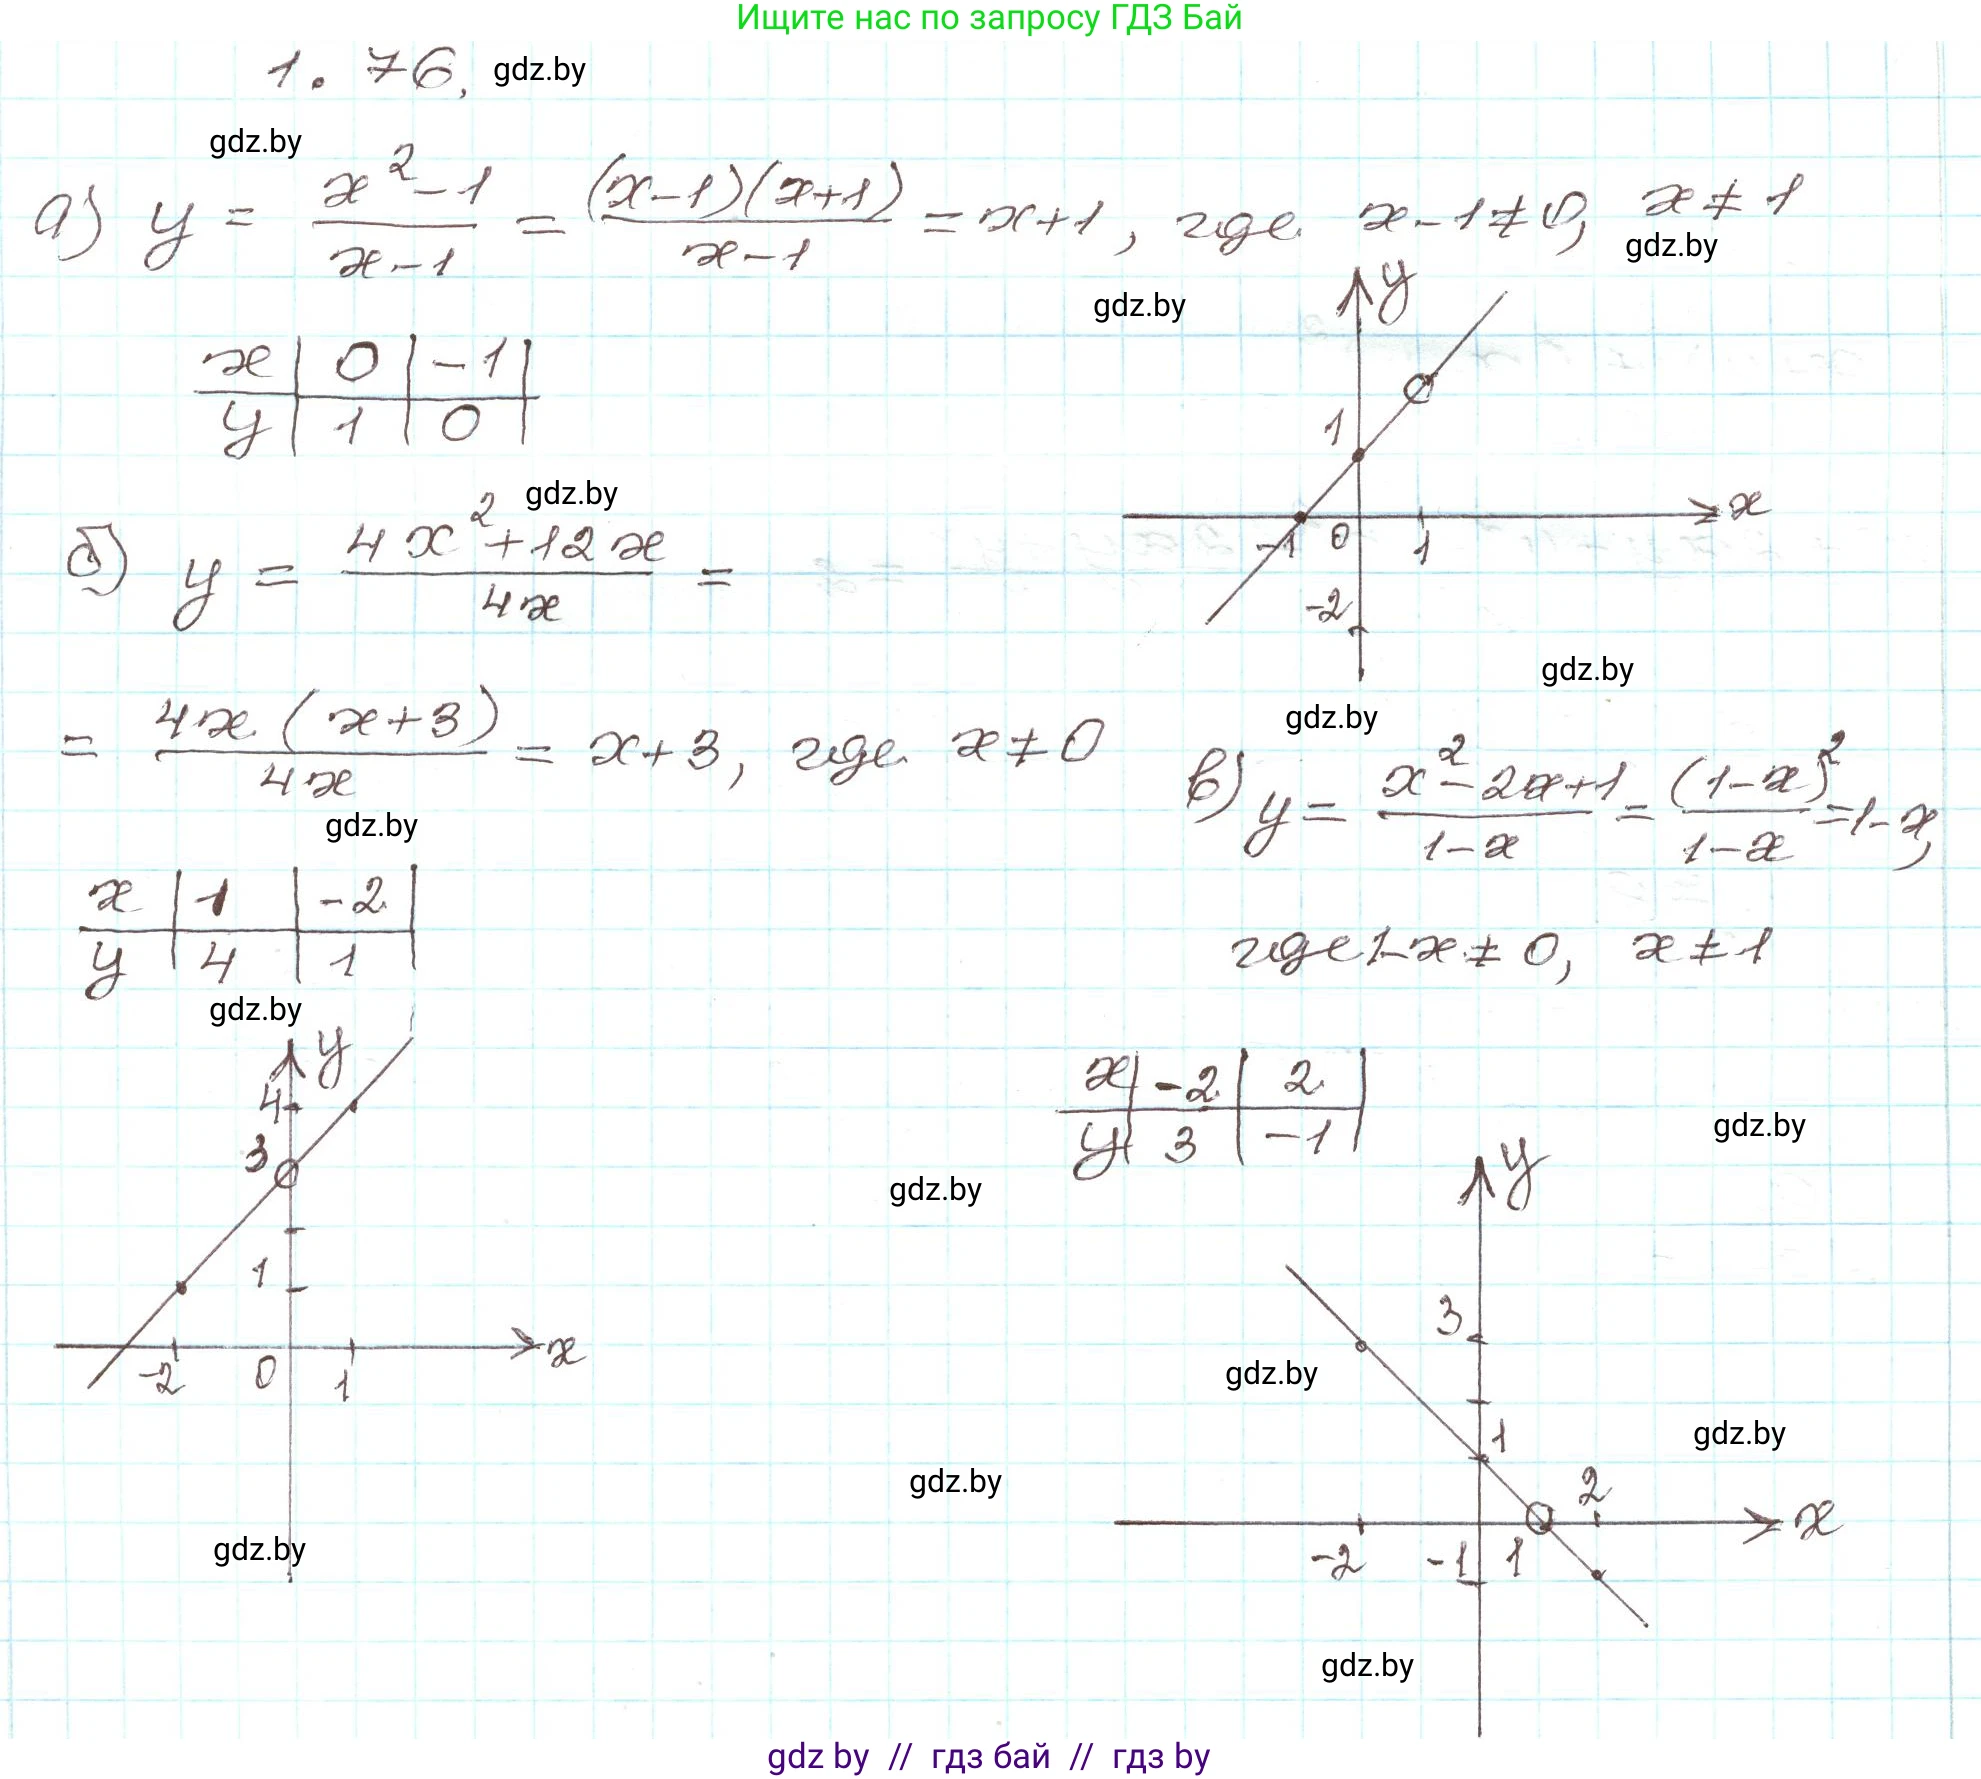 Ищите нас по запросу ГДЗ Бай
1.76, gdz.by
gdz.by
а) y = \frac{x^2-1}{x-1} = \frac{(x-1)(x+1)}{x-1} = x+1, где x-1≠0, x≠1
gdz.by
gdz.by
x | 0 | -1 |
y | 1 | 0 |
y
1
-1 0 1 x
-2
gdz.by
б) y = \frac{4x^2+12x}{4x} =
gdz.by
= \frac{4x(x+3)}{4x} = x+3, где x≠0
gdz.by
x | 1 | -2 |
y | 4 | 1 |
gdz.by
y
4
3
1
-2 0 1 x
gdz.by
gdz.by
в) y = \frac{x^2-2x+1}{1-x} = \frac{(1-x)^2}{1-x} = 1-x,
где 1-x≠0, x≠1
x | -2 | 2 |
y | 3 | -1 |
gdz.by
gdz.by
y
3
gdz.by
1
gdz.by
2
gdz.by
x
-2 -1 1
gdz.by
gdz by // гдз бай // гдз by